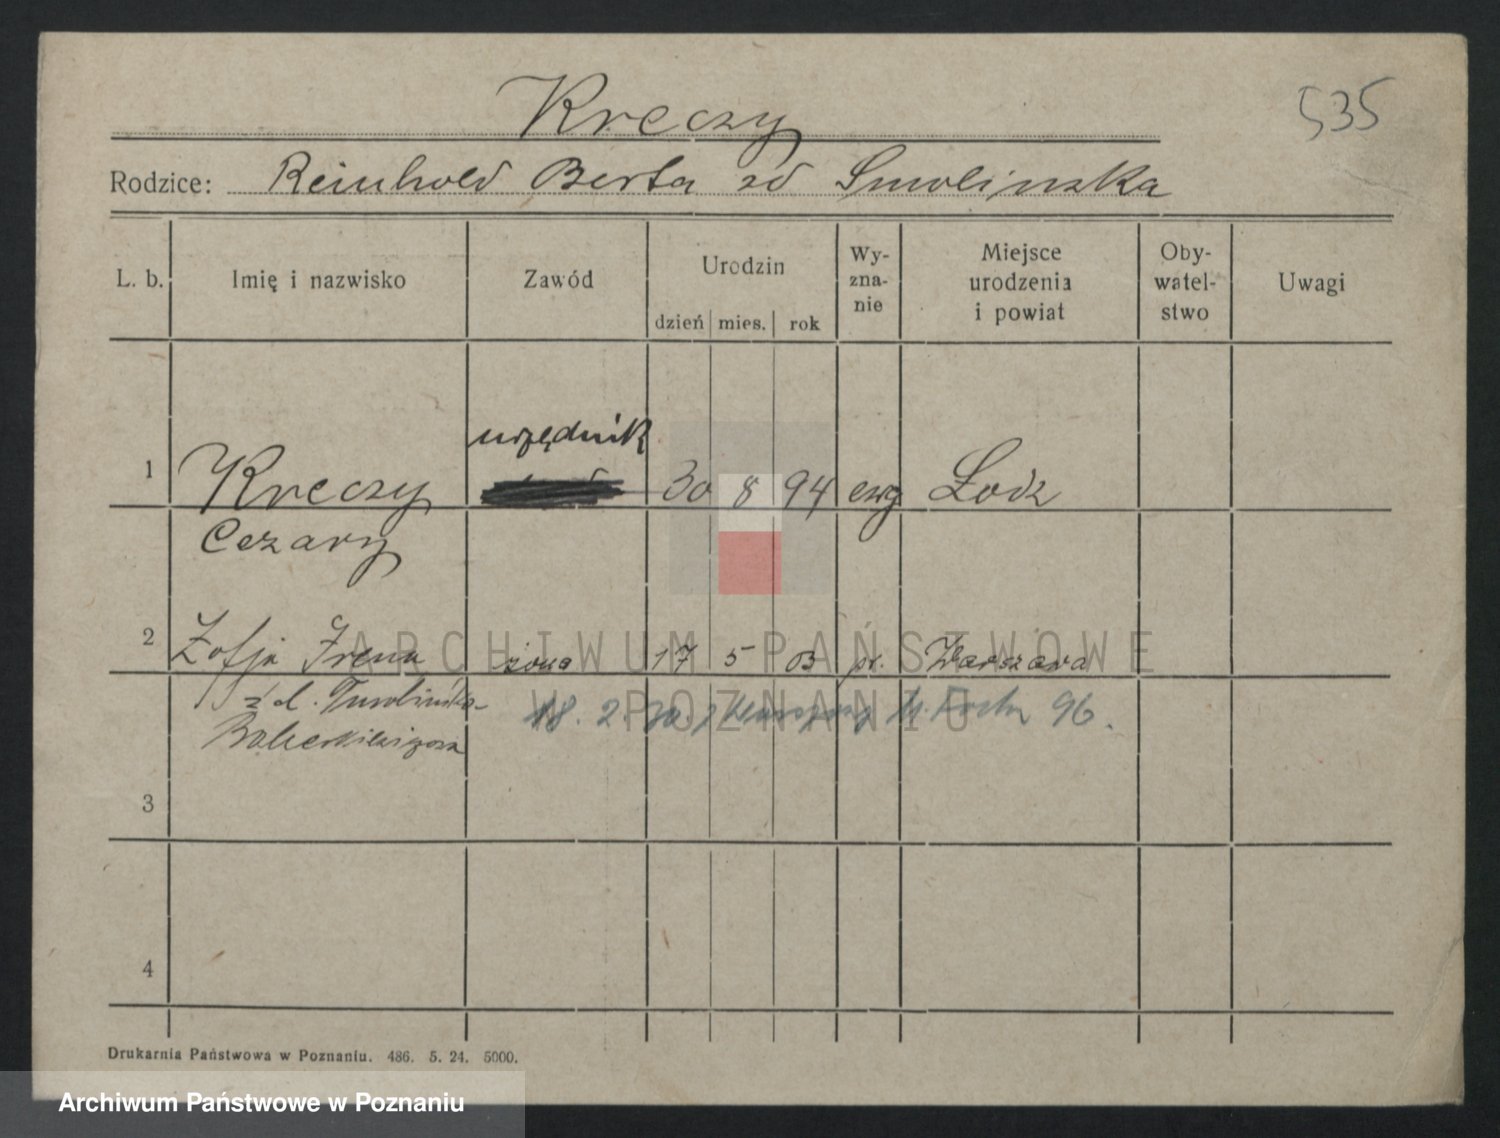 Kreczy
535
Rodzice: Reinhold Berta zd Smolińska
L. b.
Imię i nazwisko
Zawód
Urodzin
dzień mies. rok
Wy-
zna-
nie
Miejsce
urodzenia
i powiat
Oby-
watel-
stwo
Uwagi
urzędnik
1 Kreczy 30 8 94 ewg Łodz
Cezary
2 Zofja Irena żona 17 5 03 Warszawa
z d.
18. 2. 96.
3
4
Drukarnia Państwowa w Poznaniu. 486. 5. 24. 5000.
ARCHIWUM PAŃSTWOWE
W POZNANIU
Archiwum Państwowe w Poznaniu